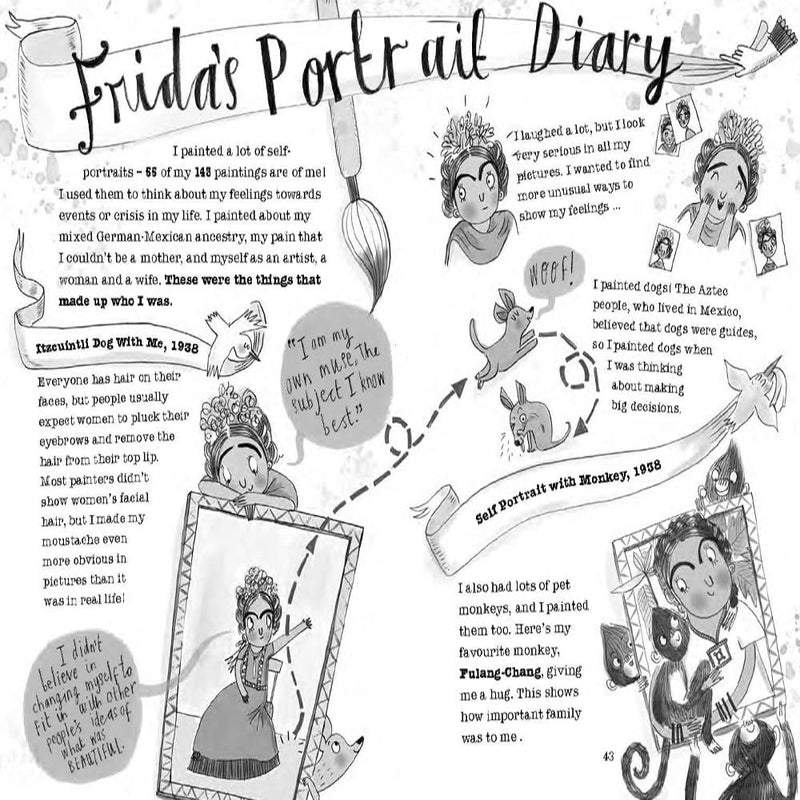 Frida's Portrait Diary
I painted a lot of self-
portraits – 55 of my 143 paintings are of me!
I used them to think about my feelings towards
events or crisis in my life. I painted about my
mixed German-Mexican ancestry, my pain that
I couldn't be a mother, and myself as an artist, a
woman and a wife. These were the things that
made up who I was.
Itzcuintli Dog With Me, 1938
Everyone has hair on their
faces, but people usually
expect women to pluck their
eyebrows and remove the
hair from their top lip.
Most painters didn't
show women's facial
hair, but I made my
moustache even
more obvious in
pictures than it
was in real life!
"I am my
own muse, the
subject I know
best."
I didn't
believe in
changing myself to
fit in with other
people's ideas of
what was
BEAUTIFUL.
I laughed a lot, but I look
very serious in all my
pictures. I wanted to find
more unusual ways to
show my feelings ...
WOOF!
I painted dogs! The Aztec
people, who lived in Mexico,
believed that dogs were guides,
so I painted dogs when
I was thinking
about making
big decisions.
Self Portrait with Monkey, 1938
I also had lots of pet
monkeys, and I painted
them too. Here's my
favourite monkey,
Fulang-Chang, giving
me a hug. This shows
how important family
was to me.
43